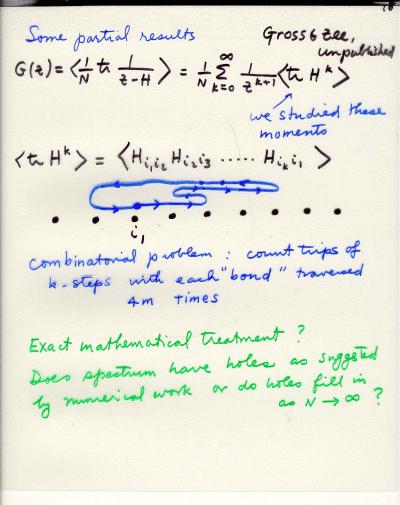 Some partial results
Gross & Zee,
unpublished
G(z) = ⟨1/N tr 1/(z-H)⟩ = 1/N ∑_{k=0}^{∞} 1/z^{k+1} ⟨tr H^k⟩
we studied these
moments
⟨tr H^k⟩ = ⟨H_{i_1 i_2} H_{i_2 i_3} ..... H_{i_k i_1}⟩
i_1
Combinatorial problem : count trips of
k-steps with each "bond" traversed
4m times
Exact mathematical treatment ?
Does spectrum have holes as suggested
by numerical work or do holes fill in
as N → ∞ ?